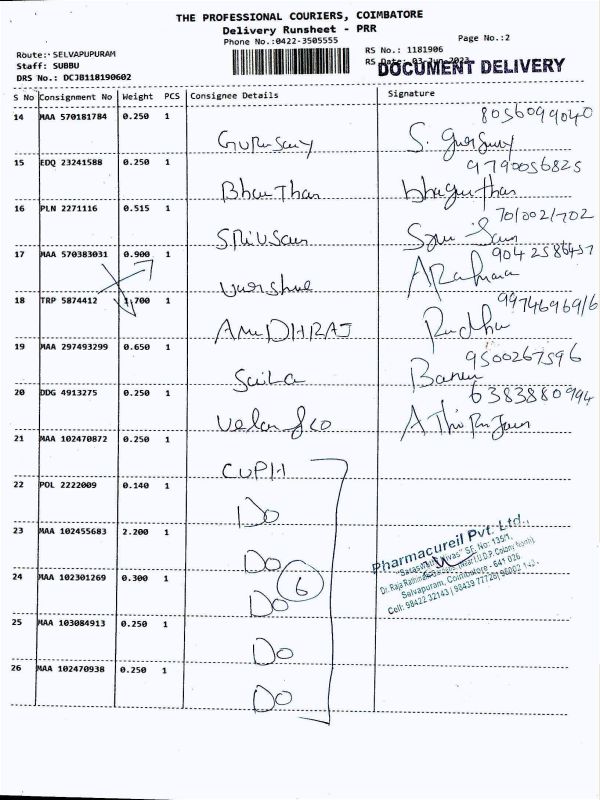 THE PROFESSIONAL COURIERS, COIMBATORE
Delivery Runsheet - PRR
Phone No.:0422-3505555
Page No.:2
Route:- SELVAPUPURAM
RS No.: 1181906
Staff: SUBBU
RS Date: 03-Jun-2023
DOCUMENT DELIVERY
DRS No.: DCJB118190602
S No Consignment No Weight PCS Consignee Details Signature
8056099040
14 MAA 570181784 0.250 1
Gurusamy S. Gurusamy
9790056825
15 EDQ 23241588 0.250 1
16 PLN 2271116 0.515 1
17 MAA 570383031 0.900 1
18 TRP 5874412 1.700 1
AnuDHIRAJ Radha
9500267596
19 MAA 297493299 0.650 1
Saila Banu
6383880994
20 DDG 4913275 0.250 1
Velan & co
21 MAA 102470872 0.250 1
CUPH
22 POL 2222009 0.140 1
Do
23 MAA 102455683 2.200 1
Do
24 MAA 102301269 0.300 1
6
Do
25 MAA 103084913 0.250 1
Do
26 MAA 102470938 0.250 1
Do
Pharmacureil Pvt. Ltd.,
Selvapuram, Coimbatore - 641 026